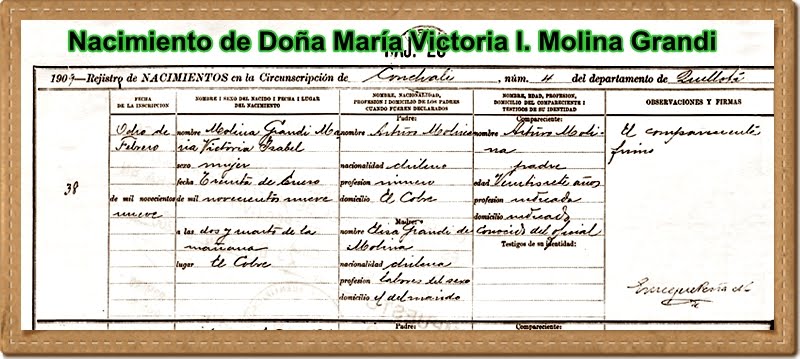 Nacimiento de Doña María Victoria I. Molina Grandi
1909-Rejistro de NACIMIENTOS en la Circunscripción de Conchalí, núm. 4 del departamento de Quillota
FECHA
DE LA INSCRIPCION
NOMBRE I SEXO DEL NACIDO I FECHA I LUGAR
DEL NACIMIENTO
NOMBRE, NACIONALIDAD,
PROFESION I DOMICILIO DE LOS PADRES
CUANDO FUEREN DECLARADOS
NOMBRE, EDAD, PROFESION,
DOMICILIO DEL COMPARECIENTE I
TESTIGOS DE SU IDENTIDAD
OBSERVACIONES Y FIRMAS
38
Ocho de
Febrero
de mil novecientos
nueve
nombre Molina Grandi Ma
ria Victoria Isabel
sexo mujer
fecha Treinta de Enero
de mil novecientos nueve
a las dos y cuarto de la
mañana
lugar El Cobre
Padre:
nombre Arturo Molina
nacionalidad chilena
profesion minero
domicilio El Cobre
Madre:
nombre Elisa Grandi de
Molina
nacionalidad chilena
profesion labores del sexo
domicilio el del marido
Compareciente:
nombre Arturo Moli-
na
padre
edad Veintisiete años
profesion indicada
domicilio indicado
Conocido del oficial
Testigos de su identidad:
El compareciente
firmó
Padre:
Compareciente: